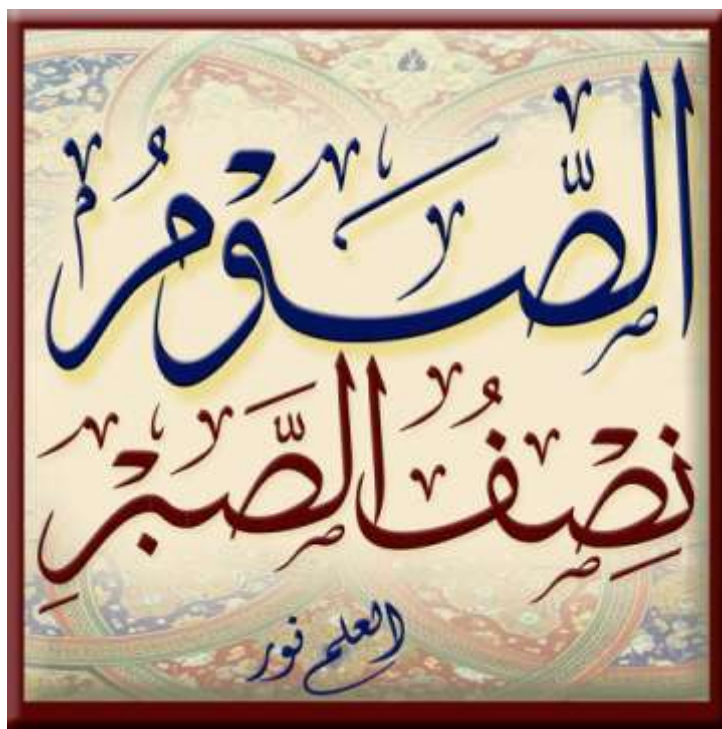 الصَّوْمُ
نِصْفُ الصَّبْرِ
العلم نور